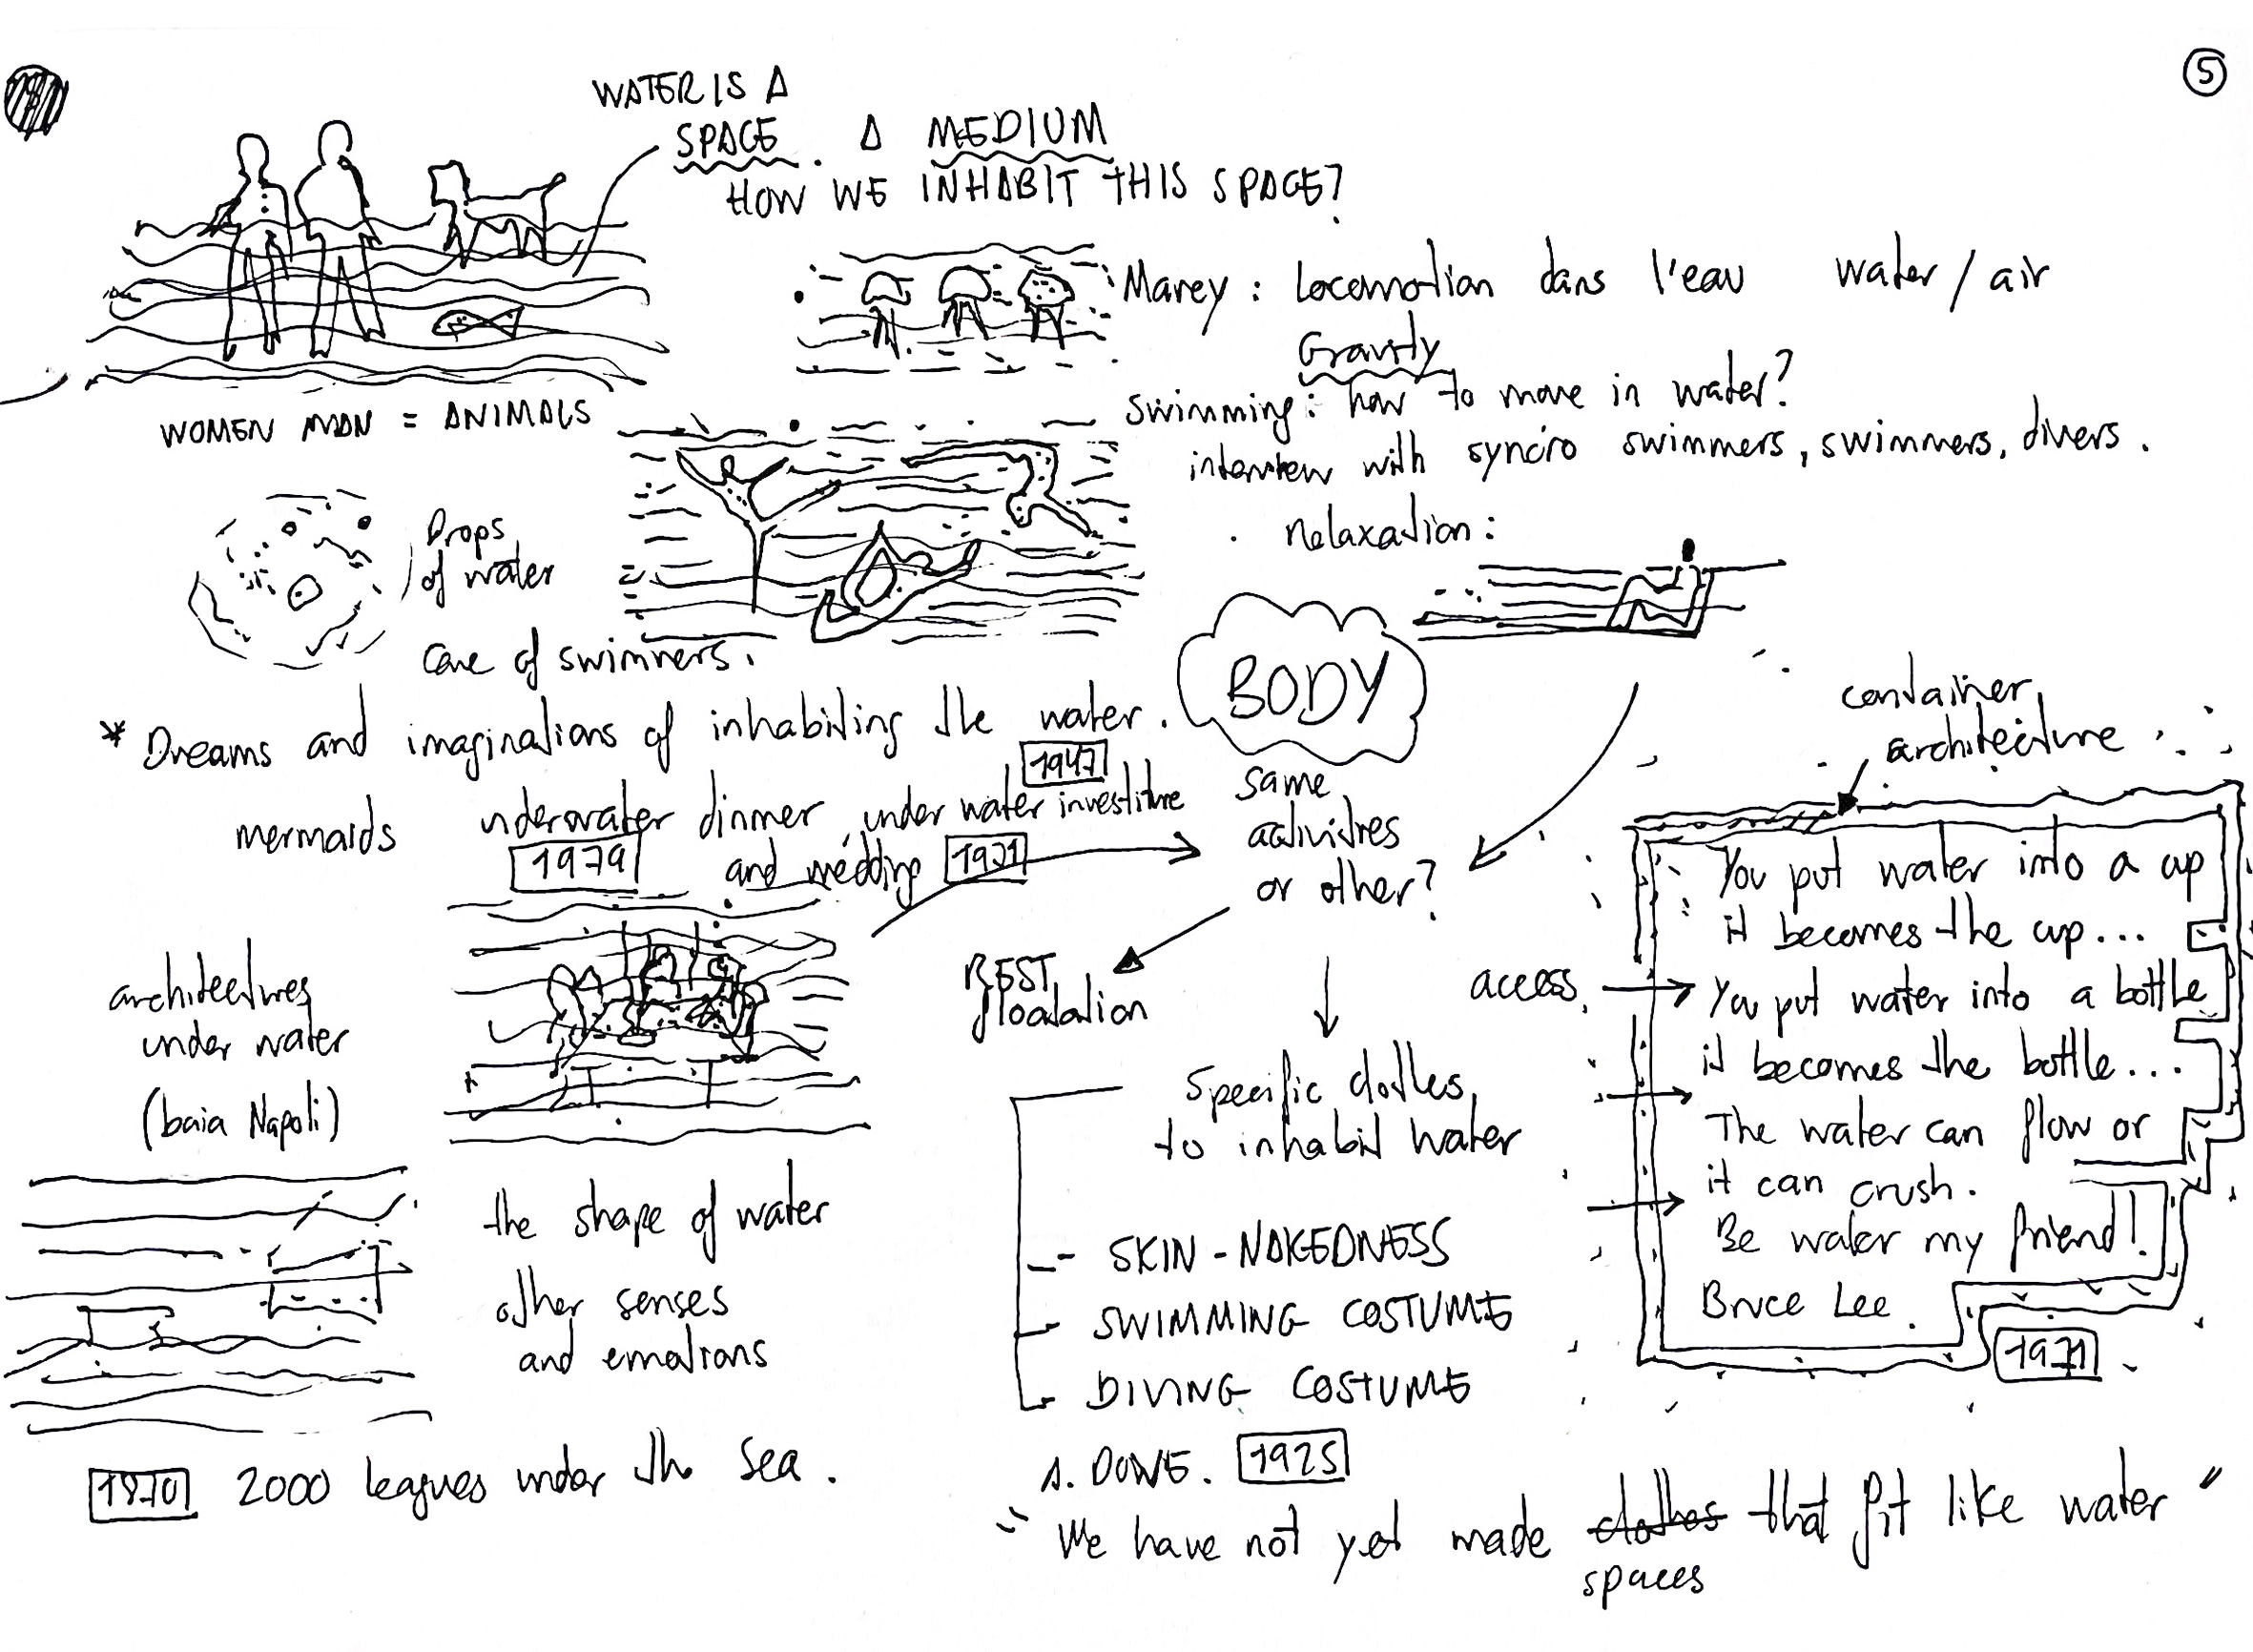 5
WATER IS A
SPACE. A MEDIUM
HOW WE INHABIT THIS SPACE?
WOMEN MAN = ANIMALS
Marey : locomotion dans l'eau water / air
Gravity
swimming : how to move in water?
interview with syncro swimmers, swimmers, divers.
relaxation :
Drops
of water
of swimmers.
BODY
* Dreams and imaginations of inhabiting the water.
1947
mermaids underwater dinner, under water investiture
1979
and wedding 1971
same
activities
or other?
container
architecture
architectures
under water
(baia Napoli)
REST
floatation
access
You put water into a up
it becomes the cup...
You put water into a bottle
it becomes the bottle...
The water can flow or
it can crush.
Be water my friend!
Bruce Lee.
1971
the shape of water
other senses
and emotions
Specific clothes
to inhabit water
- SKIN - NAKEDNESS
- SWIMMING COSTUME
- DIVING COSTUME
1870 2000 leagues under the sea.
A. DOVE. 1925
"We have not yet made clothes that fit like water"
spaces